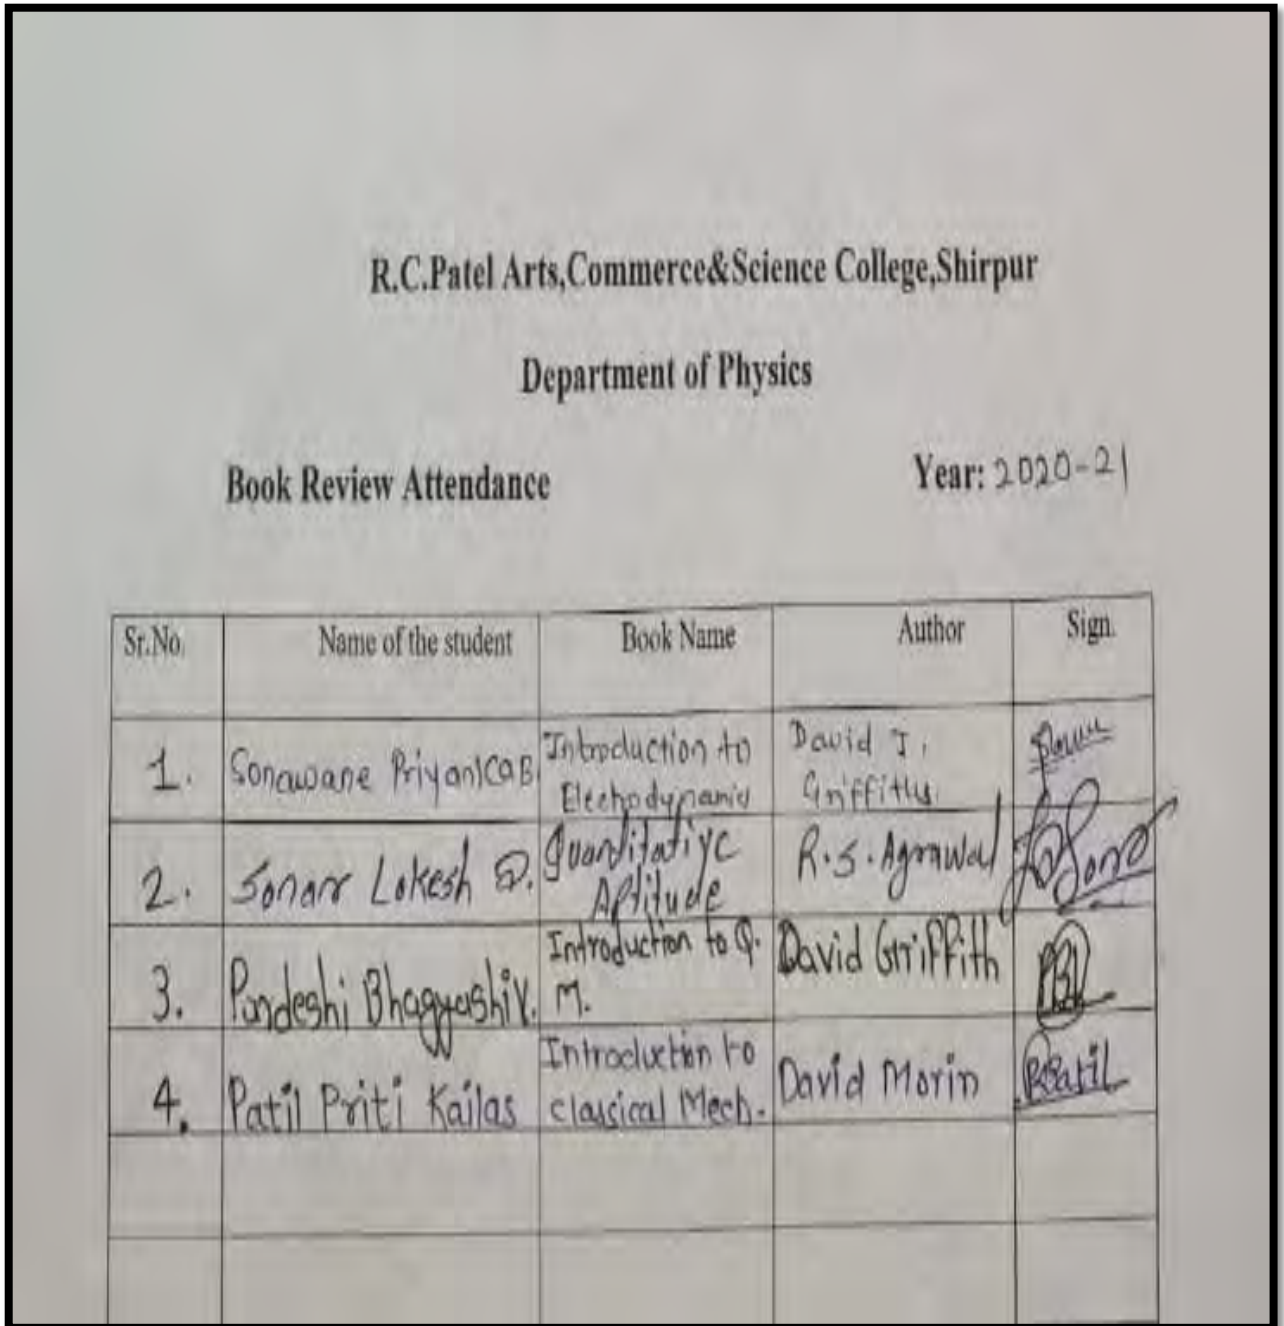 R.C.Patel Arts,Commerce&Science College,Shirpur
Department of Physics
Book Review Attendance Year: 2020-21
Sr.No. Name of the student Book Name Author Sign.
1. Sonawane Priyanka B Introduction to David J.
Electrodynamic Griffiths
2. Sonar Lokesh D. Quantitative R.S.Agrawal
Aptitude
3. Pardeshi Bhagyashi V. Introduction to Q. David Griffith
M.
4. Patil Priti Kailas Introduction to David Morin RPatil
classical Mech.